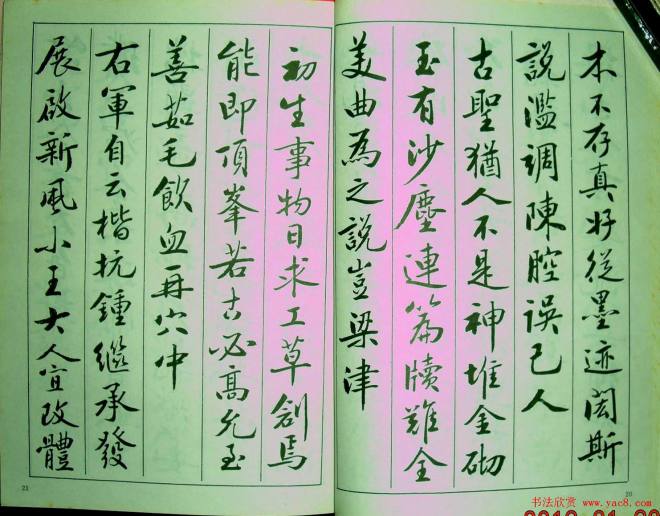 木不存真好從墨迹闊斯
說濫調陳腔誤己人
古聖猶人不是神堆金砌
玉有沙塵連篇牘難全
美曲為之說豈梁津
初生事物日求工草創焉
能即頂峯若古必高允至
善茹毛飲血再穴中
右軍自云楷抗鍾繼承發
展啟新風小王大人宜改體
21
20
书法欣赏 www.yac8.com